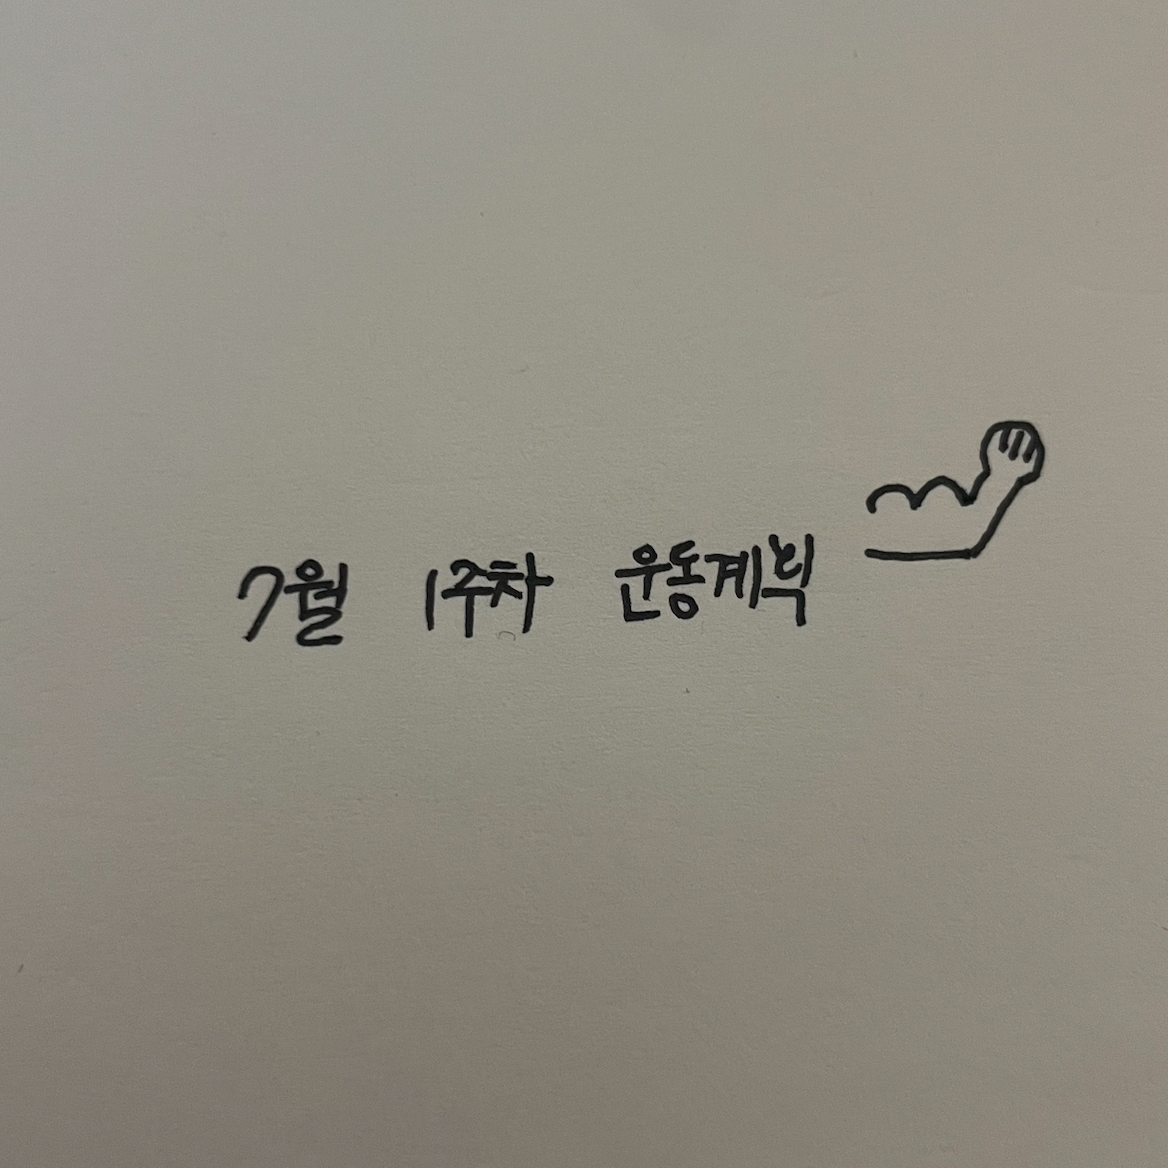 7월 1주차 운동계획